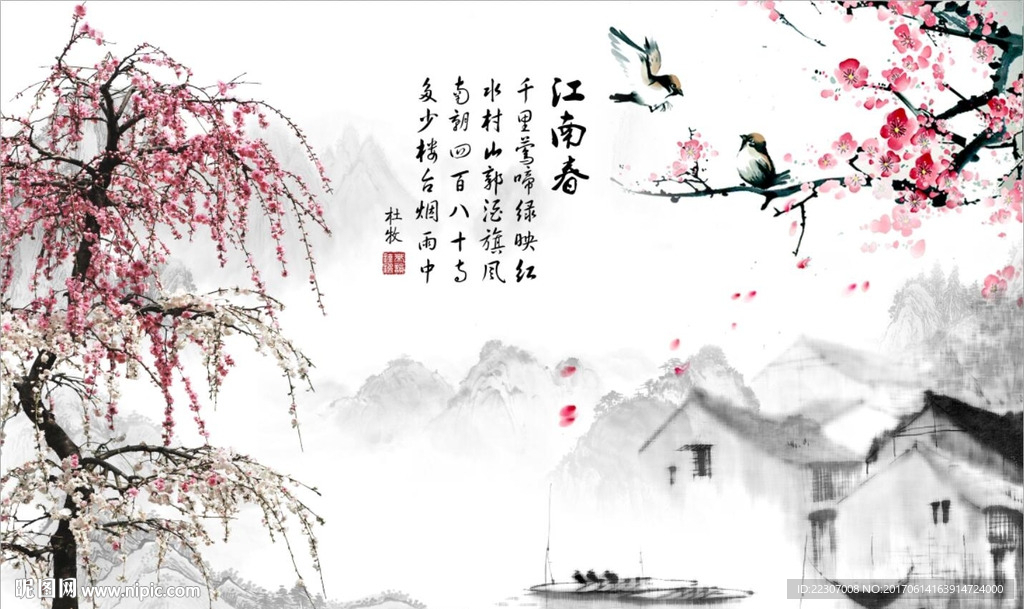 江南春
千里莺啼绿映红
水村山郭酒旗风
南朝四百八十寺
多少楼台烟雨中
杜牧
昵图网 www.nipic.com
ID:22307008 NO:20170614163914724000